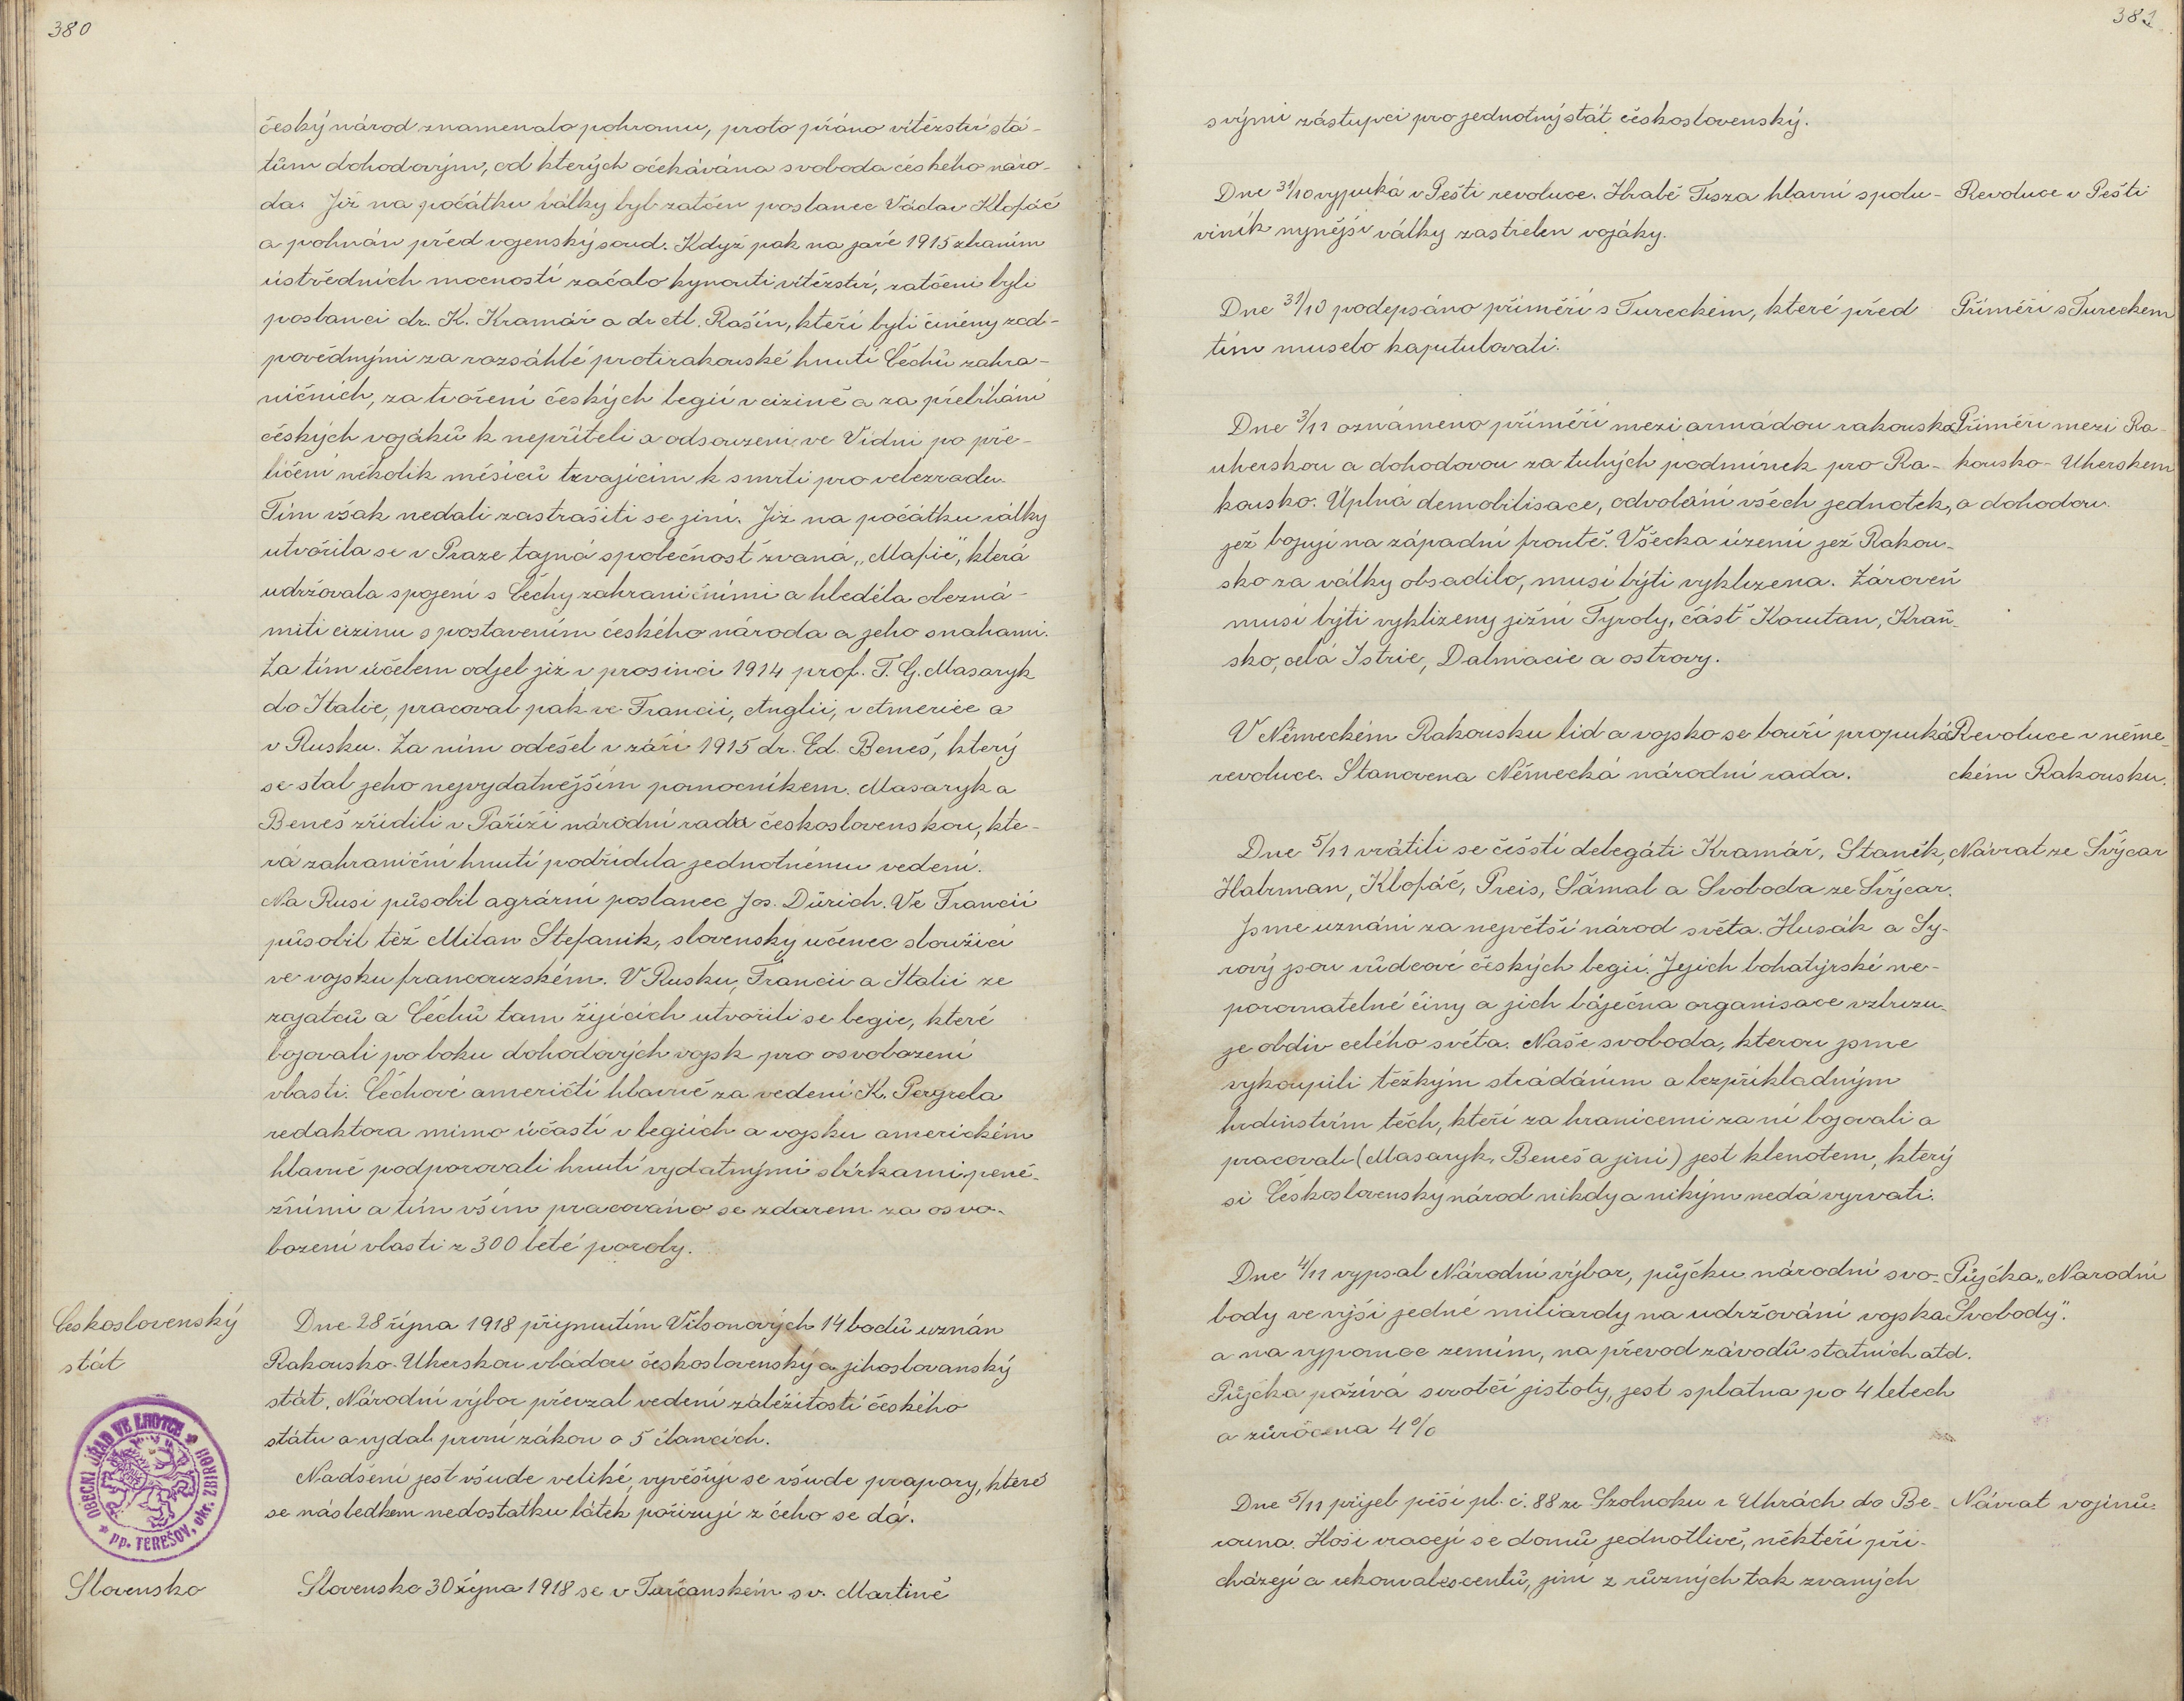 380
český národ znamenalo pohromu, proto přáno vítězství stá-
tům dohodovým, od kterých očekávána svoboda českého náro-
da. Již na počátku války byl zatčen poslanec Václav Klofáč
a pohnán před vojenský soud. Když pak na jaře 1915 zbraním
ústředních mocností začalo kynouti vítězství, zatčeni byli
poslanci dr. K. Kramář a dr Al. Rašín, kteří byli činěny zod-
povědnými za rozsáhlé protirakouské hnutí Čechů zahra-
ničních, za tvoření českých legií v cizině a za přebíhání
českých vojáků k nepříteli a odsouzeni ve Vídni po pře-
líčení několik měsíců trvajícím k smrti pro velezradu.
Tím však nedali zastrašiti se jiní. Již na počátku války
utvořila se v Praze tajná společnost zvaná „Mafie", která
udržovala spojení s Čechy zahraničními a hleděla obezná-
miti cizinu s postavením českého národa a jeho snahami.
Za tím účelem odjel již v prosinci 1914 prof. T. G. Masaryk
do Italie, pracoval pak ve Francii, Anglii, v Americe a
v Rusku. Za ním odešel v září 1915 dr. Ed. Beneš, který
se stal jeho nejvydatnějším pomocníkem. Masaryk a
Beneš zřídili v Paříži národní radu československou, kte-
rá zahraniční hnutí podřídila jednotnému vedení.
Na Rusi působil agrární poslanec Jos. Dürich. Ve Francii
působil též Milan Štefanik, slovenský učenec sloužící
ve vojsku francouzském. V Rusku, Francii a Italii ze
zajatců a Čechů tam žijících utvořili se legie, které
bojovali po boku dohodových vojsk pro osvobození
vlasti. Čechové američtí hlavně za vedení K. Pergrela
redaktora mimo účastí v legiích a vojsku americkém
hlavně podporovali hnutí vydatnými sbírkami peně-
žními a tím vším pracováno se zdarem za osvo-
bození vlasti z 300 leté poroby.
Československý
stát
Dne 28 října 1918 přijmutím Vilsonových 14 bodů uznán
Rakousko-Uherskou vládou československý a jihoslovanský
stát. Národní výbor převzal vedení záležitostí českého
státu a vydal první zákon o 5 článcích.
Nadšení jest všude veliké, vyvěšují se všude prapory, které
se následkem nedostatku látek pořizují z čeho se dá.
OBECNÍ ÚŘAD VE LHOTCE
okr. ZBIROH
pp. TEREŠOV,
Slovensko
Slovensko 30 října 1918 se v Turčanském sv. Martině
381
svými zástupci pro jednotný stát československý.
Dne 31/10 vypuká v Pešti revoluce. Hrabě Tisza hlavní spolu-
viník nynější války zastřelen vojáky.
Revoluce v Pešti
Dne 31/10 podepsáno příměří s Tureckem, které před
tím muselo kaputulovati.
Příměří s Tureckem
Dne 3/11 oznámeno příměří mezi armádou rakousko
uherskou a dohodovou za tuhých podmínek pro Ra-
kousko. Úplná demobilisace, odvolání všech jednotek,
jež bojují na západní frontě. Všecka území jež Rakou-
sko za války obsadilo, musí býti vyklizena. Zároveň
musí býti vyklizeny jižní Tyroly, část Korutan, Kraň-
sko, celá Istrie, Dalmacie a ostrovy.
Příměří mezi Ra-
kousko-Uherskem
a dohodou.
V Německém Rakousku lid a vojsko se bouří propuká
revoluce. Stanovena Německá národní rada.
Revoluce v něme-
ckém Rakousku.
Dne 5/11 vrátili se čeští delegáti Kramář, Staněk,
Habrman, Klofáč, Preis, Šámal a Svoboda ze Švýcar.
Jsme uznáni za největší národ světa. Husák a Sy-
rový jsou vůdcové českých legií. Jejich bohatýrské ne-
porovnatelné činy a jich báječna organisace vzbuzu-
je obdiv celého světa. Naše svoboda, kterou jsme
vykoupili těžkým strádáním a bezpříkladným
hrdinstvím těch, kteří za hranicemi za ní bojovali a
pracovali (Masaryk, Beneš a jiní) jest klenotem, který
si Československý národ nikdy a nikým nedá vyrvati.
Návrat ze Švýcar
Dne 4/11 vypsal Národní výbor, půjčku národní svo-
body ve výši jedné miliardy na udržování vojska
a na vypomoc zemím, na převod závodů statních atd.
Půjčka požívá sirotčí jistoty, jest splatna po 4 letech
a zúročena 4%
Půjčka „Narodní
Svobody".
Dne 5/11 přijel pěší pl. č. 88 ze Szolnoku v Uhrách do Be-
rouna. Hoši vracejí se domů jednotlivě, někteří při-
cházejí a rekonvalescentů, jiní z různých tak zvaných
Návrat vojínů.